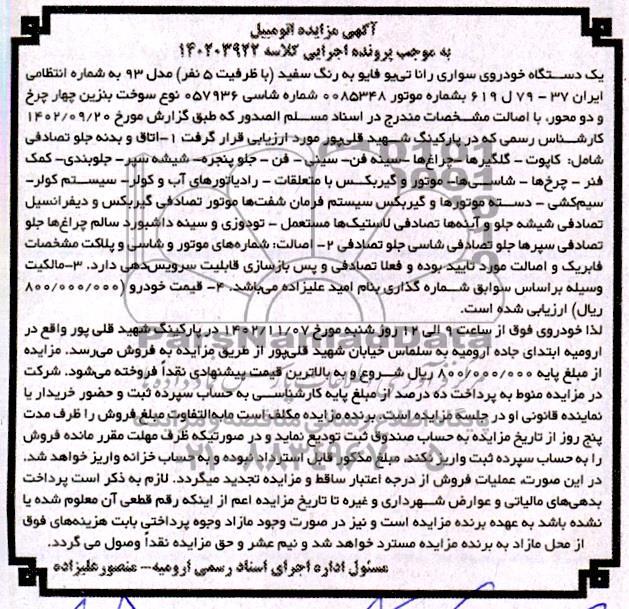 آگهی مزایده اتومبیل
به موجب پرونده اجرایی کلاسه ۱۴۰۲۰۳۹۲۲
یک دستگاه خودروی سواری رانا تی‌یو فایو به رنگ سفید (با ظرفیت ۵ نفر) مدل ۹۳ به شماره انتظامی
ایران ۳۷ - ۷۹ ل ۶۱۹ بشماره موتور ۰۰۸۵۳۴۸ شماره شاسی ۰۵۷۹۳۶ نوع سوخت بنزین چهار چرخ
و دو محور، با اصالت مشخصات مندرج در اسناد مسلم الصدور که طبق گزارش مورخ ۱۴۰۲/۰۹/۲۰
کارشناس رسمی که در پارکینگ شهید قلی‌پور مورد ارزیابی قرار گرفت ۱-اتاق و بدنه جلو تصادفی
شامل: کاپوت - گلگیرها -چراغها -سینه فن- سینی - فن - جلو پنجره- شیشه سپر- جلوبندی- کمک
فنر - چرخ‌ها - شاسی‌ها- موتور و گیربکس با متعلقات - رادیاتورهای آب و کولر- سیستم کولر-
سیم‌کشی - دسته موتورها و گیربکس سیستم فرمان شفت‌ها موتور تصادفی گیربکس و دیفرانسیل
تصادفی شیشه جلو و آینه‌ها تصادفی لاستیک‌ها مستعمل - تودوزی و سینه داشبورد سالم چراغ‌ها جلو
تصادفی سپرها جلو تصادفی شاسی جلو تصادفی ۲- اصالت: شماره‌های موتور و شاسی و پلاکت مشخصات
فابریک و اصالت مورد تایید بوده و فعلا تصادفی و پس بازسازی قابلیت سرویس‌دهی دارد. ۳-مالکیت
وسیله براساس سوابق شماره گذاری بنام امید علیزاده می‌باشد. ۴- قیمت خودرو (۸۰۰/۰۰۰/۰۰۰
ریال) ارزیابی شده است.
لذا خودروی فوق از ساعت ۹ الی ۱۲ روز شنبه مورخ ۱۴۰۲/۱۱/۰۷ در پارکینگ شهید قلی پور واقع در
ارومیه ابتدای جاده ارومیه به سلماس خیابان شهید قلی‌پور از طریق مزایده به فروش می‌رسد. مزایده
از مبلغ پایه ۸۰۰/۰۰۰/۰۰۰ ریال شروع و به بالاترین قیمت پیشنهادی نقداً فروخته می‌شود. شرکت
در مزایده منوط به پرداخت ده درصد از مبلغ پایه کارشناسی به حساب سپرده ثبت و حضور خریدار یا
نماینده قانونی او در جلسه مزایده است. برنده مزایده مکلف است مابه‌التفاوت مبلغ فروش را ظرف مدت
پنج روز از تاریخ مزایده به حساب صندوق ثبت تودیع نماید و در صورتیکه ظرف مهلت مقرر مانده فروش
را به حساب سپرده ثبت واریز نکند، مبلغ مذکور قابل استرداد نبوده و به حساب خزانه واریز خواهد شد.
در این صورت، عملیات فروش از درجه اعتبار ساقط و مزایده تجدید میگردد. لازم به ذکر است پرداخت
بدهی‌های مالیاتی و عوارض شهرداری و غیره تا تاریخ مزایده اعم از اینکه رقم قطعی آن معلوم شده یا
نشده باشد به عهده برنده مزایده است و نیز در صورت وجود مازاد وجوه پرداختی بابت هزینه‌های فوق
از محل مازاد به برنده مزایده مسترد خواهد شد و نیم عشر و حق مزایده نقداً وصول می گردد.
مسئول اداره اجرای اسناد رسمی ارومیه- منصور علیزاده